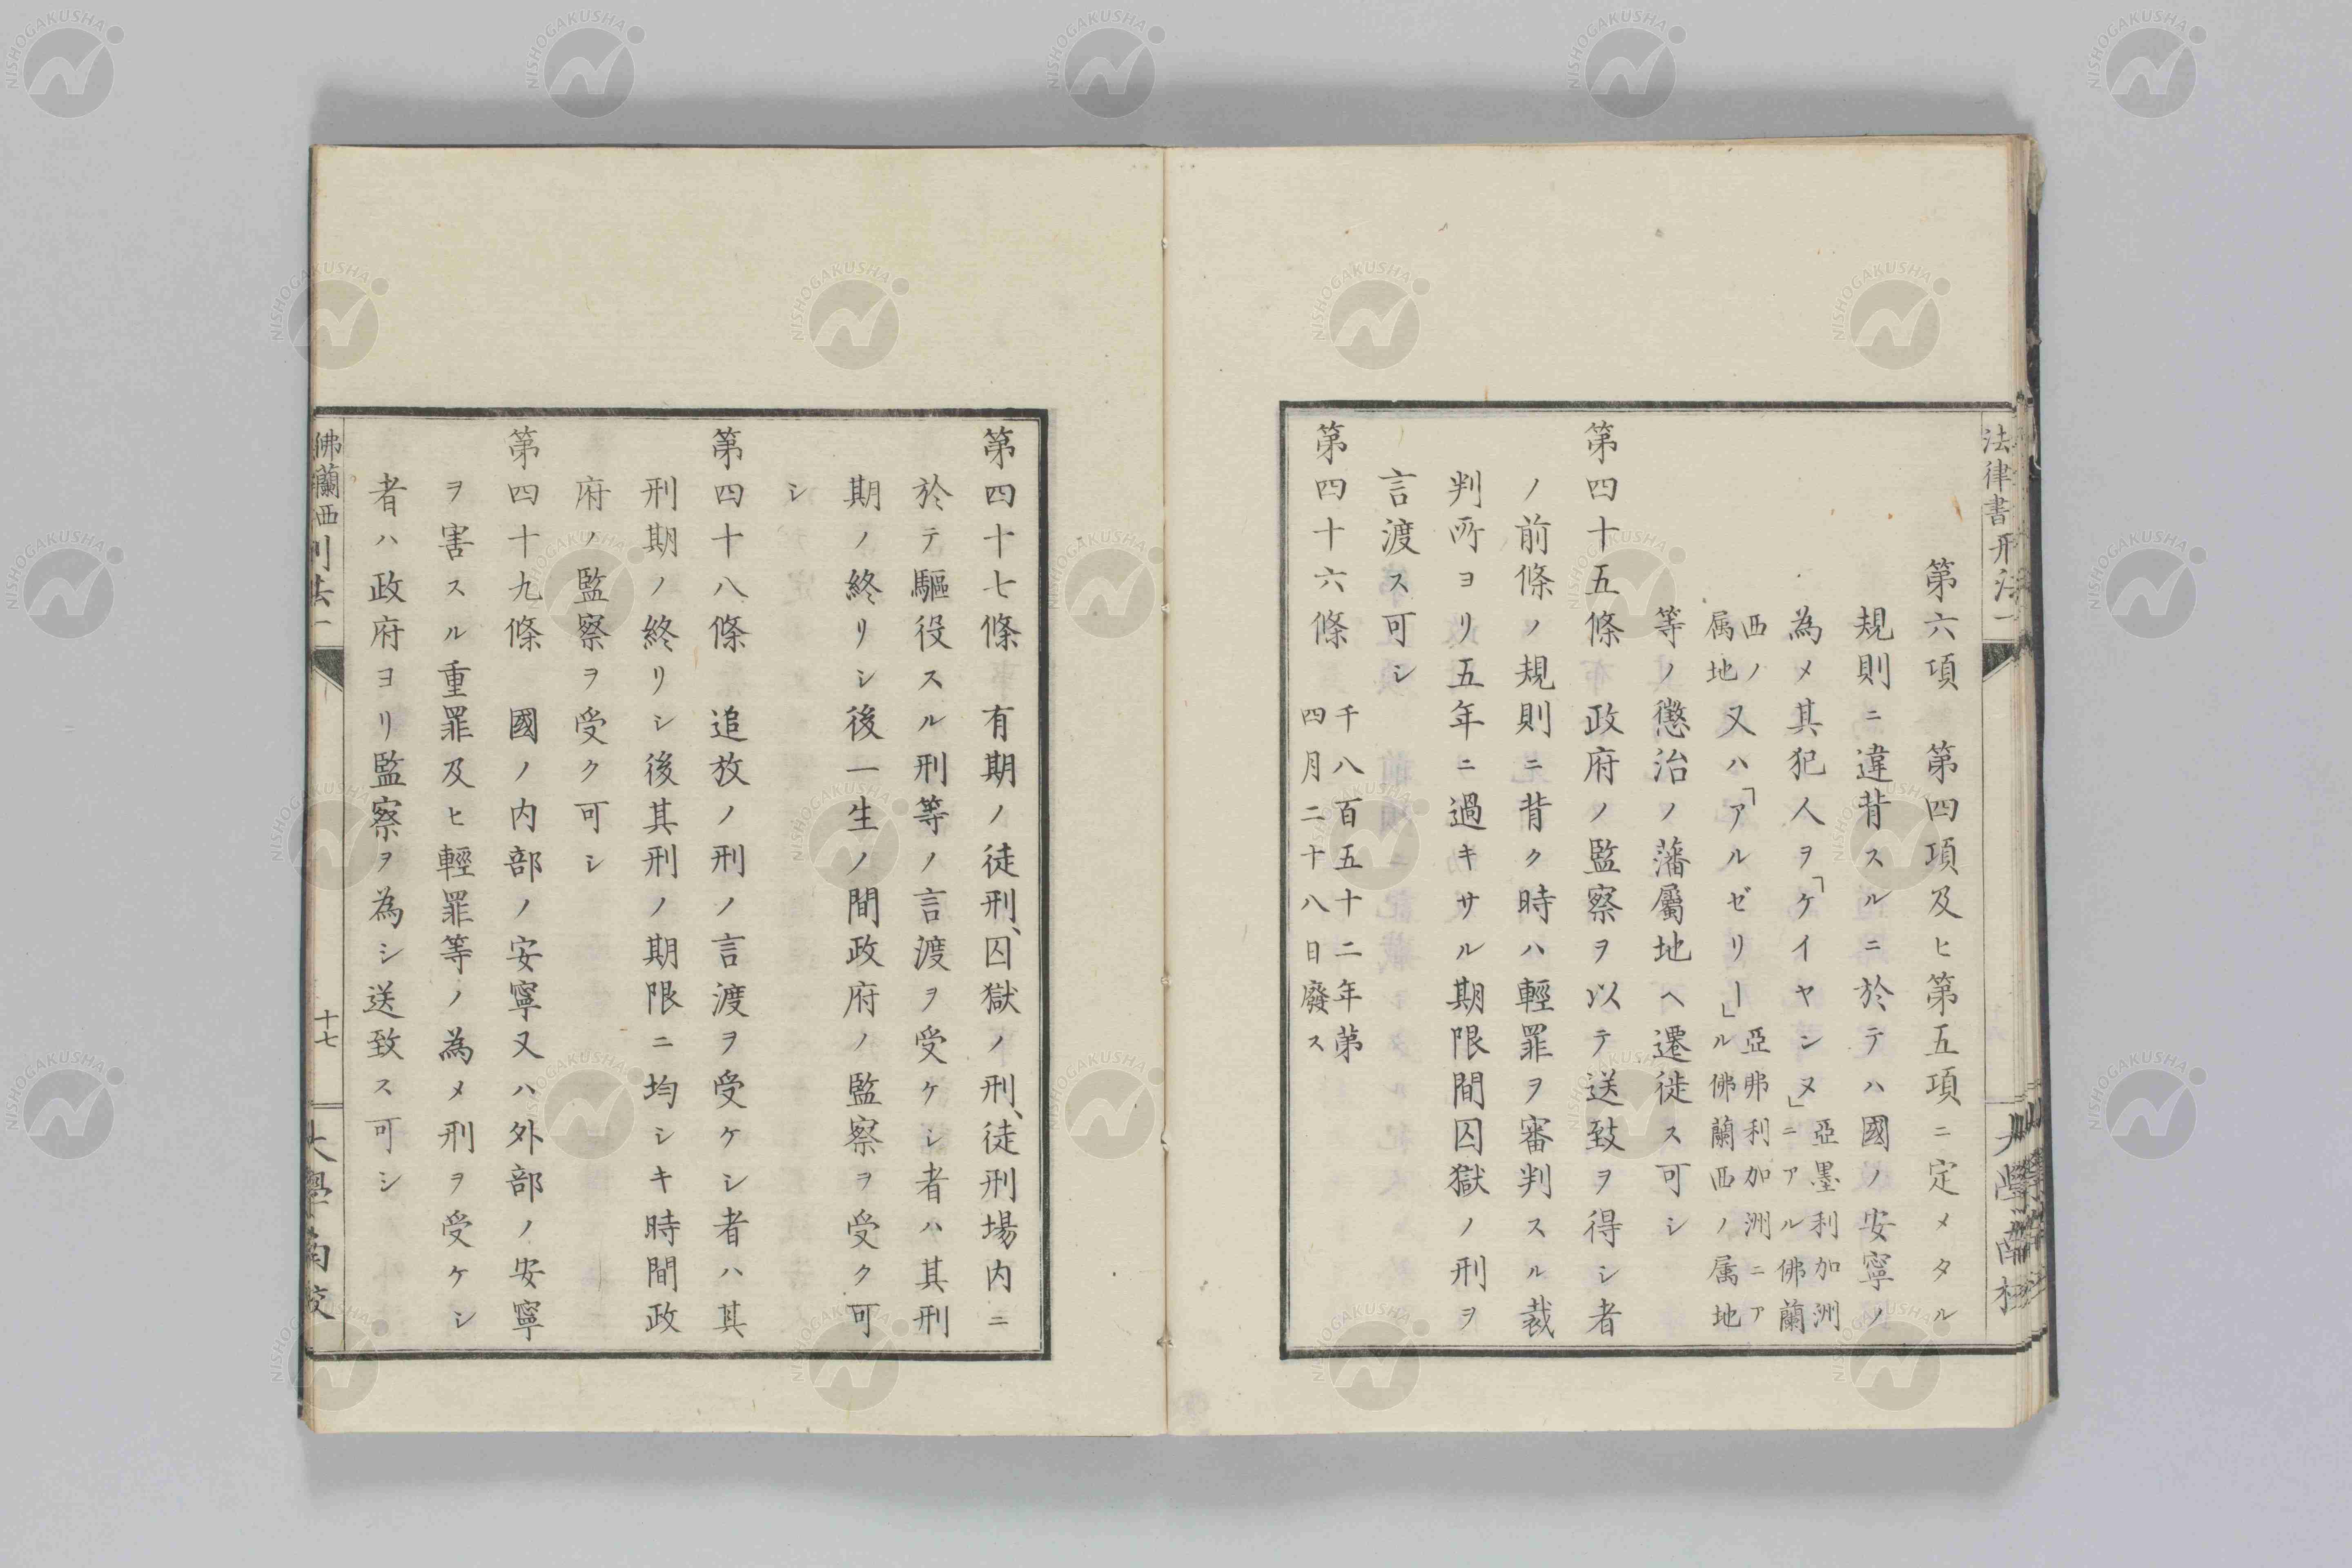 法律書刑法一
第六項　第四項及ヒ第五項ニ定メタル
規則ニ違背スルニ於テハ國ノ安寧ノ
為メ其犯人ヲ「ケイヤンヌ」亞墨利加洲ニアル佛蘭
西ノ属地又ハ「アルゼリー」亞弗利加洲ニアル佛蘭西ノ属地
等ノ懲治ノ藩屬地ヘ遷徙ス可シ
第四十五條　政府ノ監察ヲ以テ送致ヲ得シ者
ノ前條ノ規則ニ背ク時ハ輕罪ヲ審判スル裁
判所ヨリ五年ニ過キサル期限間囚獄ノ刑ヲ
言渡ス可シ
第四十六條　千八百五十二年第
四月二十八日廢ス
第四十七條　有期ノ徒刑、囚獄ノ刑、徒刑場内ニ
於テ驅役スル刑等ノ言渡ヲ受ケシ者ハ其刑
期ノ終リシ後一生ノ間政府ノ監察ヲ受ク可
シ
第四十八條　追放ノ刑ノ言渡ヲ受ケシ者ハ其
刑期ノ終リシ後其刑ノ期限ニ均シキ時間政
府ノ監察ヲ受ク可シ
第四十九條　國ノ内部ノ安寧又ハ外部ノ安寧
ヲ害スル重罪及ヒ輕罪等ノ為メ刑ヲ受ケシ
者ハ政府ヨリ監察ヲ為シ送致ス可シ
佛蘭西刑法一
十七
大學南校
NISHOGAKUSHA